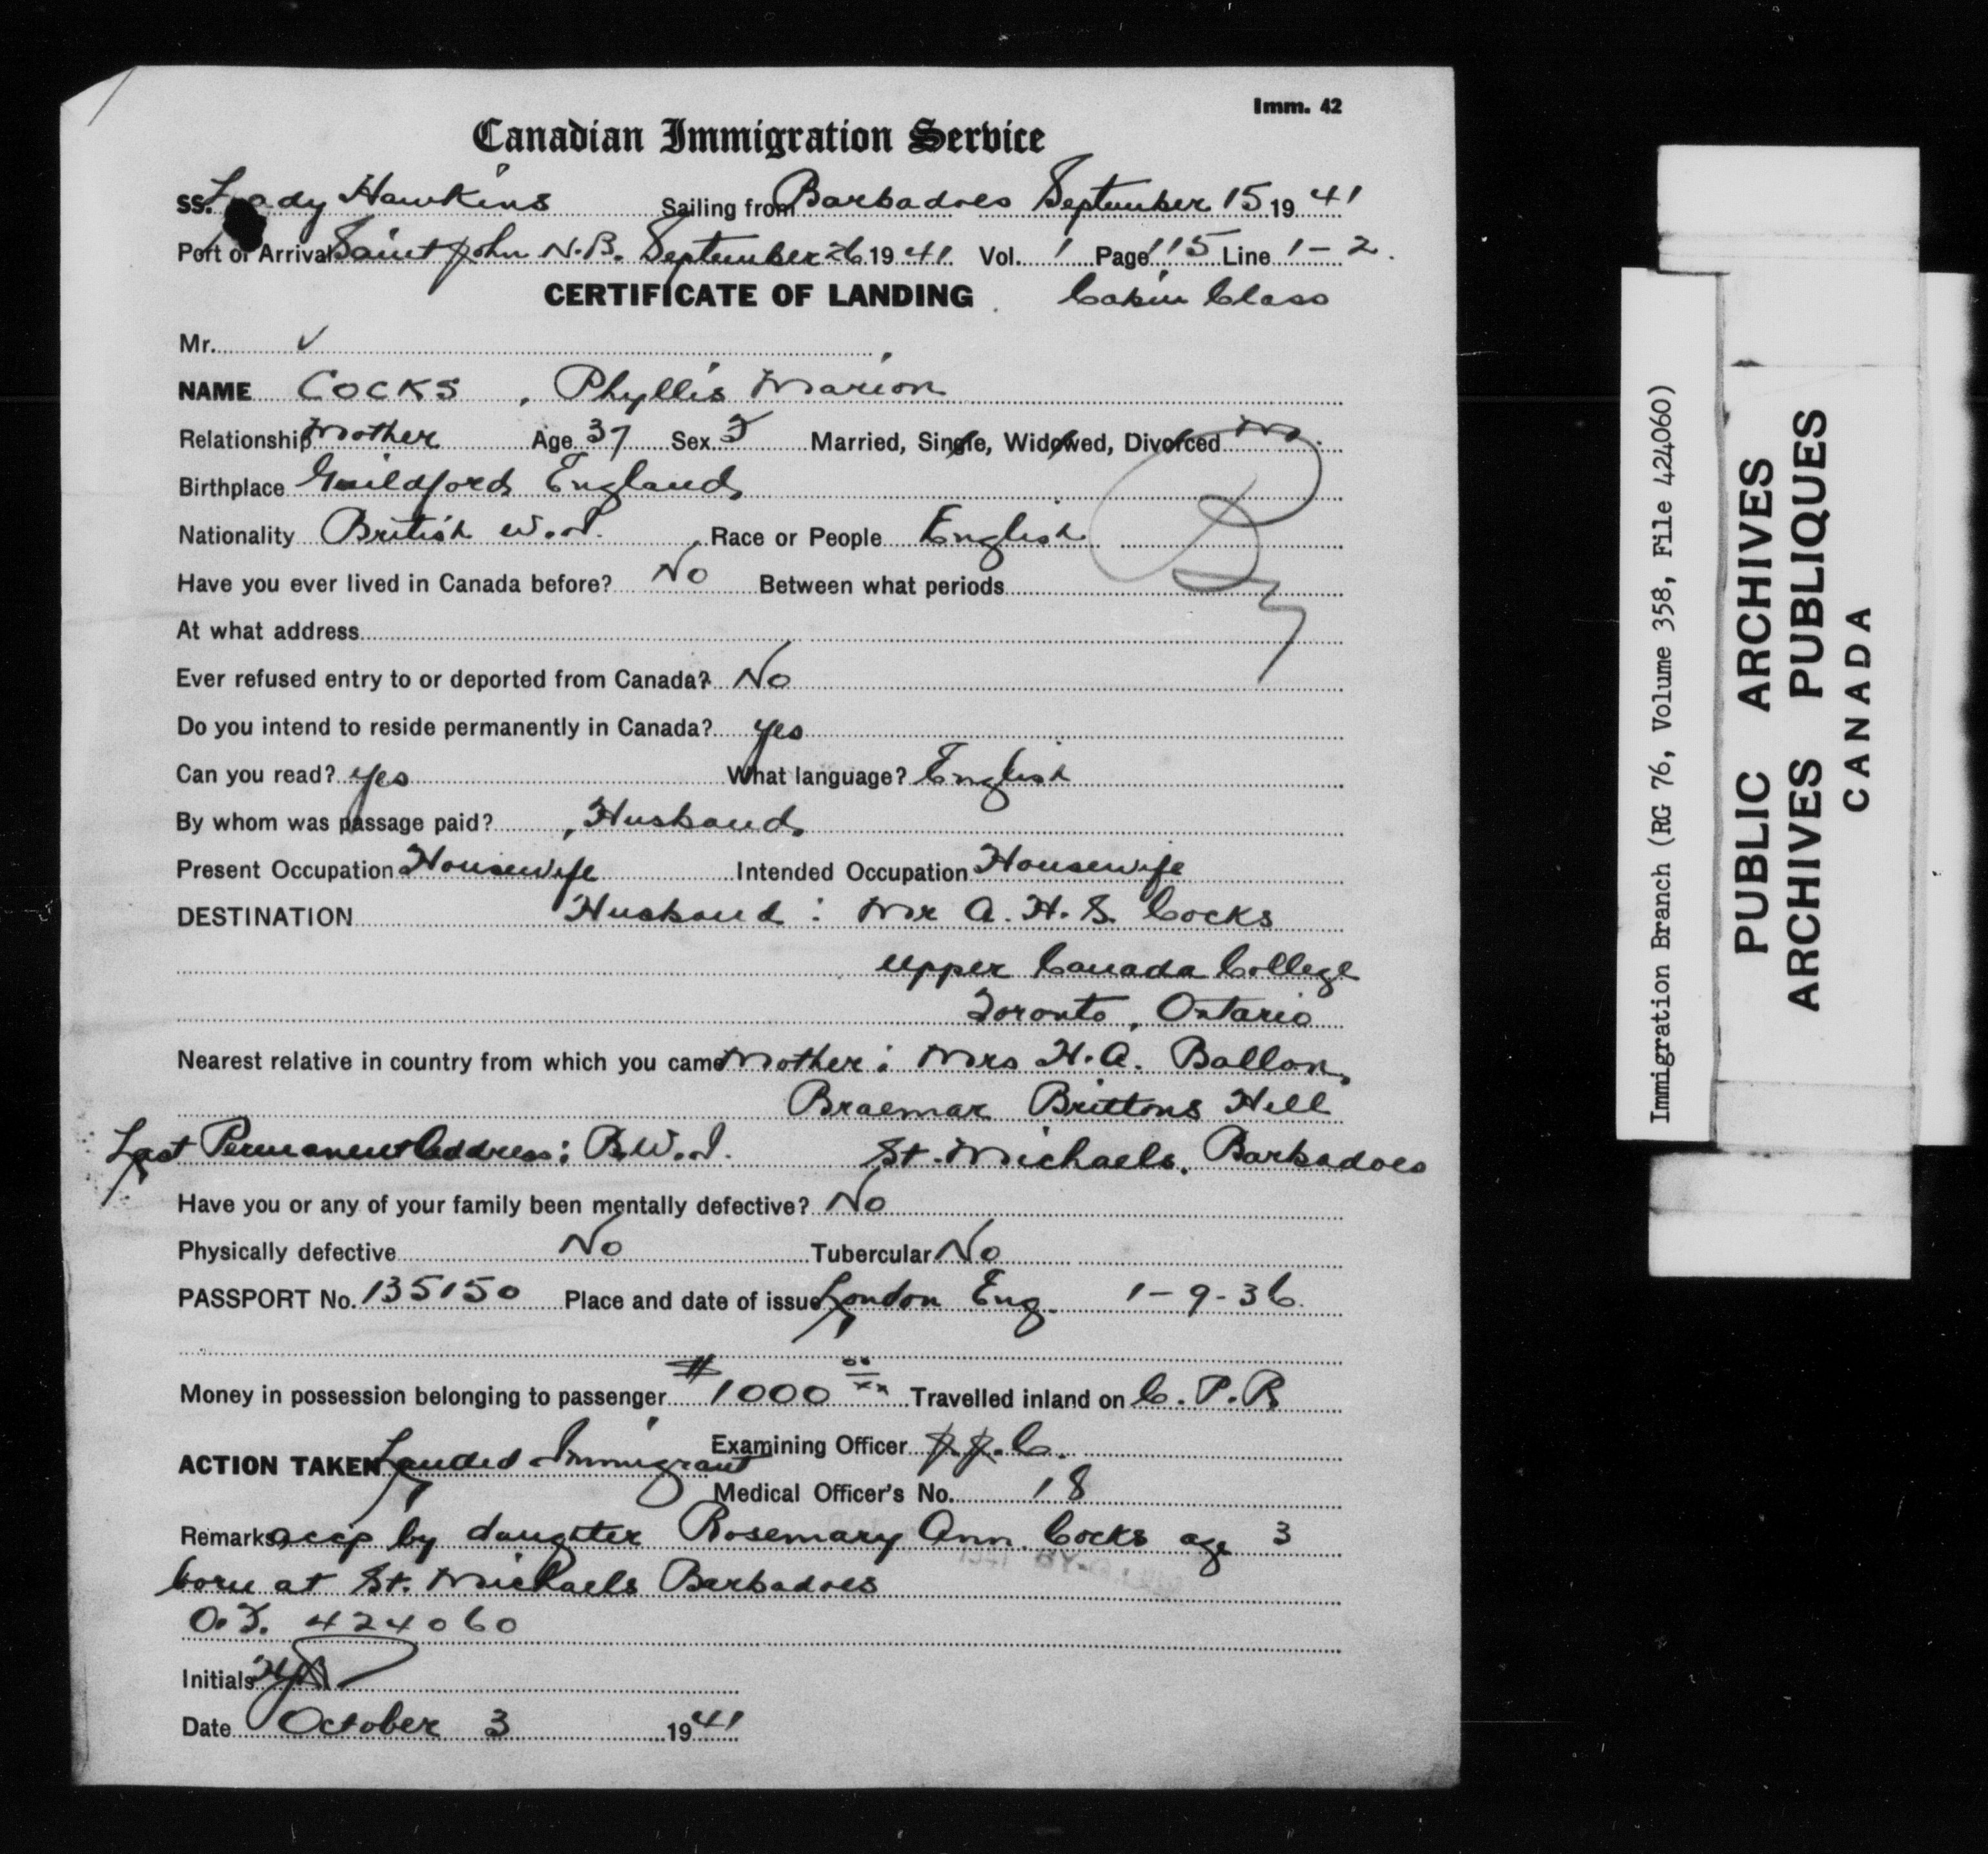 Imm. 42
Canadian Immigration Service
SS. Lady Hawkins Sailing from Barbadoes September 15 19 41
Port of Arrival Saint John N.B. September 26 19 41 Vol. 1 Page 115 Line 1-2.
CERTIFICATE OF LANDING Cabin Class
Mr. ✓
NAME COCKS, Phyllis Marion
Relationship Mother Age 37 Sex F Married, Single, Widowed, Divorced M.
Birthplace Guildford England
Nationality British W.I. Race or People English
Have you ever lived in Canada before? No Between what periods
At what address
Ever refused entry to or deported from Canada? No
Do you intend to reside permanently in Canada? yes
Can you read? yes What language? English
By whom was passage paid? Husband
Present Occupation Housewife Intended Occupation Housewife
DESTINATION Husband: Mr A. H. S. Cocks
Upper Canada College
Toronto, Ontario
Nearest relative in country from which you came Mother: Mrs H. A. Ballon,
Braemar Brittons Hill
Last Permanent Address: B.W.I. St. Michaels, Barbadoes
Have you or any of your family been mentally defective? No
Physically defective No Tubercular No
PASSPORT No. 135150 Place and date of issue London Eng. 1-9-36.
Money in possession belonging to passenger $1000 00/xx Travelled inland on C.P.R
Examining Officer J.J.C.
ACTION TAKEN Landed Immigrant
Medical Officer's No. 18
Remarks accp by daughter Rosemary Ann Cocks age 3
born at St. Michaels Barbadoes
O.F. 424060
Initials
Date October 3 19 41
Immigration Branch (RG 76, Volume 358, File 424060)
PUBLIC ARCHIVES
ARCHIVES PUBLIQUES
CANADA